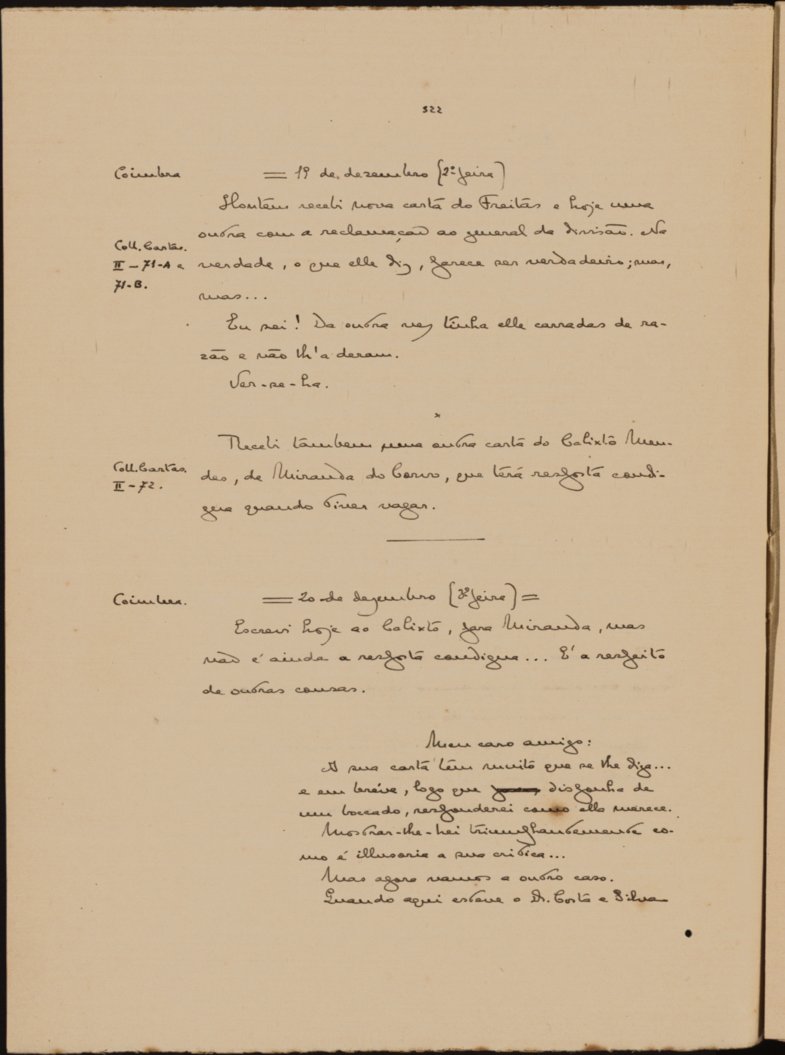 322
Coimbra = 19 de dezembro (2ª feira)
Hontem recebi nova carta do Freitas e hoje uma
outra com a reclamação ao general da divisão. Na
Coll. Cartas.
II – 71-A e
71-B.
verdade, o que elle diz, parece ser verdadeiro; mas,
mas...
Eu sei! Da outra vez tinha elle carradas de ra-
zão e não lh'a deram.
Ver-se-ha.
×
Recebi tambem uma outra carta do Calixto Men-
Coll. Cartas.
II – 72.
des, de Miranda do Corvo, que terá resposta condi-
gna quando tiver vagar.
Coimbra. = 20 de dezembro (3ª feira) =
Escrevi hoje ao Calixto, para Miranda, mas
não é ainda a resposta condigna... É a respeito
de outras cousas.
Meu caro amigo:
A sua carta têm muito que se lhe diga...
e em bréve, logo que disponha de
um boccado, responderei como ella merece.
Mostrar-lhe-hei triumphantemente co-
mo é illusoria a sua critica...
Mas agora vamos a outro caso.
Quando aqui esteve o Dr. Costa e Silva